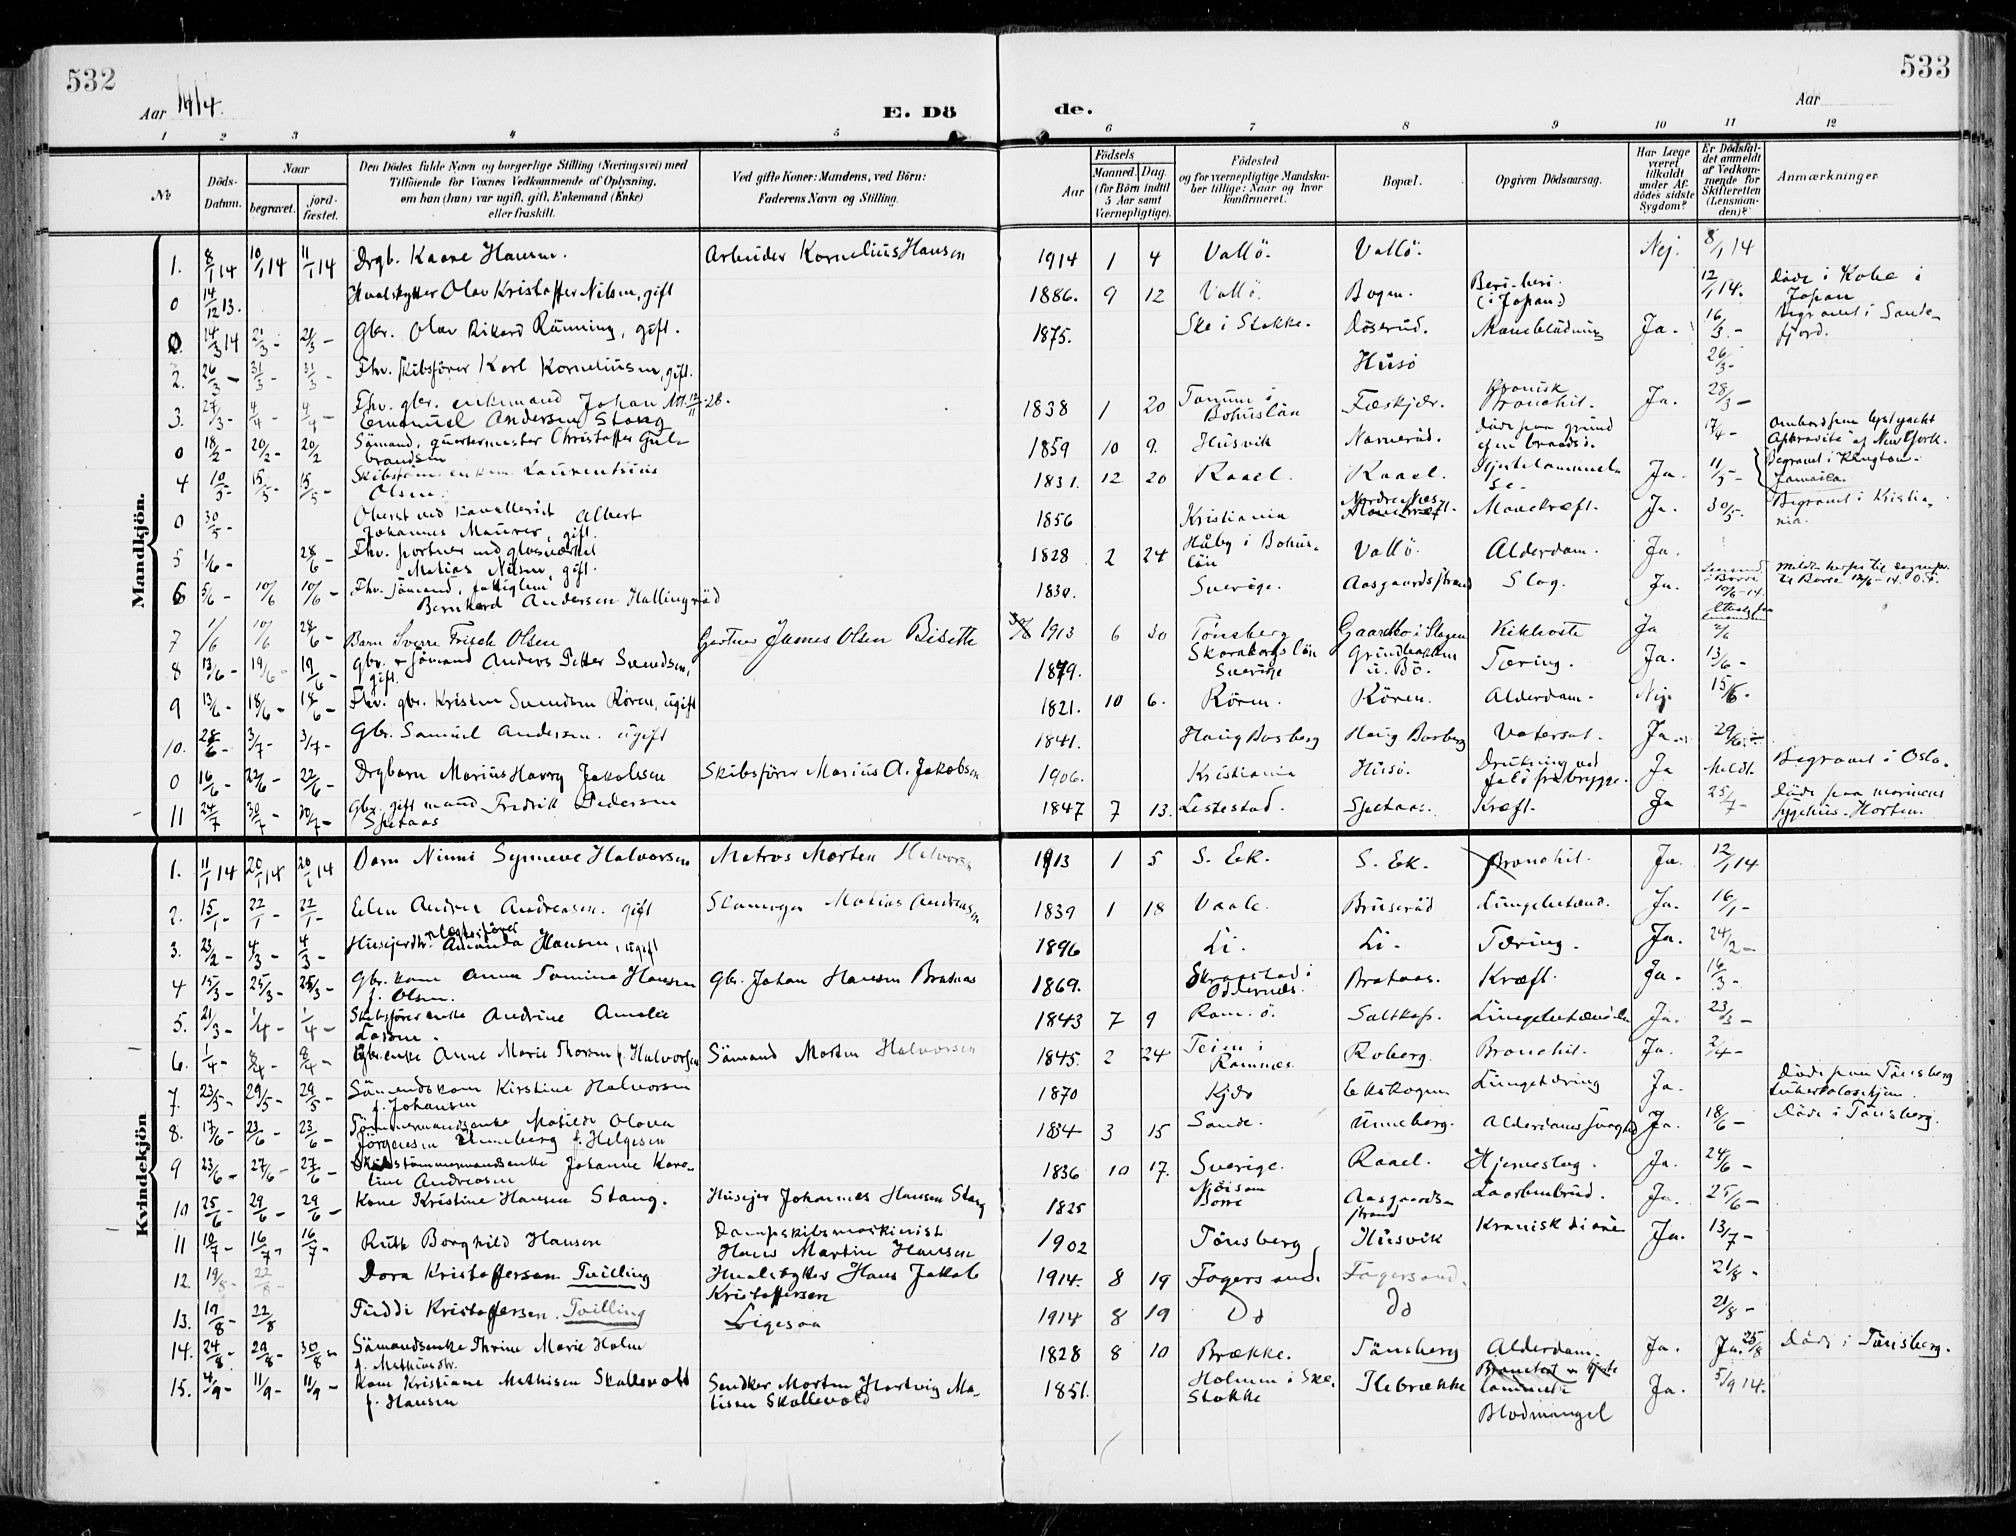 532
533
Aar 1914.
E. Dö
de.
Aar
1 2 3 4 5 6 7 8 9 10 11 12
No
Döds-Datum.
Naar
begravet.
jord-fæstet.
Den Dödes fulde Navn og borgerlige Stilling (Næringsvei) med
Tilföiende for Voxnes Vedkommende af Oplysning,
om han (hun) var ugift, gift, Enkemand (Enke)
eller fraskilt.
Ved gifte Koner: Mandens, ved Börn:
Faderens Navn og Stilling.
Födsels
Aar
Maaned. Dag.
(for Börn indtil
5 Aar samt
Værnepligtige).
Födested
og for værnepligtige Mandska-
ber tillige: Naar og hvor
konfirmeret.
Bopæl.
Opgiven Dödsaarsag.
Har Læge
været
tilkaldt
under Af-
dödes sidste
Sygdom?
Er Dödsfal-
det anmeldt
af Vedkom-
mende for
Skifteretten
(Lensman-
den)?
Anmærkninger
Mandkjön.
1. 8/1 14 10/1 14 11/1 14 Drgb. Kaare Hansen. Arbeider Kornelius Hansen 1914 1 4 Vallö. Vallö. Nej. 8/1 14
0 14/12 13. Hvalskytter Olav Kristoffer Nilsen, gift 1886. 9 12 Vallö. Bogen. Beri-beri (i Japan) 12/1 14. Döde i Kobe i Japan
0. 14/3 14 21/3 - 21/3 - Gbr. Olav Rikard Rønning, gift. 1875. Ske i Stokke. Døserud. Maveblødning Ja. 16/3 - Begravet i Sandefjord.
2. 26/3 - 31/3 - 31/3 - Fhv. skibsfører Karl Korneliusen, gift. Husö 26/3 -
3. 27/3 - 4/4 - 4/4 - Fhv. gbr. enkemand Johan Emanuel Andersen Stang 1838 1 20 Tanum i Bohuslän Fæskjær. Kronisk Bronchit. Ja. 28/3 -
0 18/2 - 20/2 - 20/2 Sömand, quartermester Christoffer Gulbrandsen 1859 10 9. Husvik Narverød. 17/4 - Ombord paa lystyacht "Aphrodite" af New York. Begravet i Kingston Jamaica.
4 10/5 - 15/5 - 15/5 - Laurentsius Olsen. 1831. 12 20 Raael. Raael. Ja. 11/5 -
0 30/5 - Oberst ved kavalleriet Albert Johannes Maurer, gift. 1856 Kristiania Nordre Næs Mavekræft. Ja. 30/5. Begravet i Kristiania.
5 1/6 - 28/6 - Fhv. portner ved glasværket Matias Nilsen, gift. 1828 2 24 Håby i Bohuslän Vallö. Alderdom. Ja.
6 5/6 - 10/6 10/6 - Fhv. sömand, fattiglem Bernhard Andersen Hallingröd 1830. Sverige. Aasgaardsstrand Slag. Ja.
7 1/6 10/6 28/6 - Barn Sverre Frisch Olsen Gartner James Olsen Bisette 1913 6 30 Tønsberg Gaardbo i Slagen Kikhoste Ja 2/6
8 13/6 - 19/6 - 19/6 - Gbr. & sömand Anders Petter Svendsen, gift. 1879. Skaraborgs län Sverige u. Bö. Tæring. Ja. 13/6 -
9 13/6 - 18/6 - 18/6 - Fhv. gbr. Kristen Svendsen Røren, ugift 1821. 10 6. Røren. Røren. Alderdom. Nej. 15/6.
10. 28/6 - 3/7 - 3/7 - Gbr. Samuel Andersen. ugift 1841. Haug Basberg Haug Basberg Vatersot. Ja. 29/6
0 16/6 - 22/6 - 22/6 - Drgbarn Marius Harry Jakobsen Skibsfører Marius A. Jakobsen 1906. Kristiania Husö. Drukning ved Jalsöbrygge. Ja Meldt. Begravet i Oslo.
11 24/7 30/7 - 30/7 - Gbr. gift mand Fredrik Pedersen Spetaas 1847 7 13. Lestestad. Spetaas. Kræft. Ja 25/7 - Döde paa marinens sygehus - Horten.
Kvindekjön
1. 11/1 14 20/1 14 20/1 14 Barn Ninni Synneve Halvorsen Matros Morten Halvorsen 1913 1 5 S. Eek. S. Ek. Bronchit. Ja. 12/1 14
2. 15/1 - 22/1 - 22/1 - Elen Andrea Andreasen. gift Matias Andreasen 1839 1 18 Vaale. Bruserød Lungebetænd. Ja. 16/1 -
3. 23/2 - 4/3 - 4/3 - Amanda Hansen, ugift 1896 Li. Li. Tæring. Ja. 24/2 -
4 15/3 - 25/3 - 25/3 - Gbr. kone Anna Tomine Hansen f. Olsen. Gbr. Johan Hansen Brataas 1869. Skraastad i Oddernæs. Brataas. Kræft. Ja. 16/3 -
5. 21/3 - 1/4 - 1/4 - Skibsförerenke Andrine Amalie Larsen. 1843 7 9 Ramsö. Saltkop. Lungebetændelse Ja. 23/3 -
6. 1/4 - 8/4 - 8/4 - Gbr. enke Anne Marie Thoresen f. Halvorsen Sömand Morten Halvorsen 1845. 2 24 Teien i Ramnes Roberg. Bronchit. Ja. 2/4 -
7. 23/5 - 29/5 - 29/5 - Sömandskone Kirstine Halvorsen f. Johansen 1870 Kjøs Ekskogen Lungetæring Ja. Döde paa Tönsberg tuberkulosehjem.
8. 17/6 - 23/6 - 23/6 - Tömmermandsenke Matilde Olava Jörgensen Unneberg f. Helgesen 1834 3 15 Sande. Unneberg. Alderdomssvaghed Ja. 18/6 - Döde i Tönsberg.
9 23/6 - 27/6 - 27/6 - Skibstömmermandsenke Johanne Karoline Andreasen 1836 10 17. Sverige. Raael. Hjerneslag. Ja. 24/6 -
10 25/6 - 29/6 - 29/6 - Kone Kristine Hansen Stang. Husejer Johannes Hansen Stang 1825 Borre Aasgaardsstrand Laarbenbrud. Ja. 25/6 -
11 10/7 - 16/7 - 16/7 - Ruth Borghild Hansen Dampskibsmaskinist Hans Martin Hansen 1902 Tönsberg Husvik Ja. 13/7 -
12. 19/8 - 22/8 - Dora Kristoffersen Tvilling Hvalskytter Hans Jakob Kristoffersen 1914. 8 19 Fagersand. Fagersand. 21/8 -
13. 19/8 - 22/8 Tuddi Kristoffersen. Tvilling Ligesaa 1914 8 19 Do Do 21/8 -
14. 24/8 - 29/8 - 30/8 - Sömandsenke Thrine Marie Holm f. Mathiasdtr. 1828 8 10 Brække. Tönsberg Alderdom. Ja. Ja. 25/8 Döde i Tönsberg.
15. 4/9 - 11/9 - 11/9 - Kone Kristiane Mathisen Skallevold f. Hansen Snedker Morten Hartvig Matisen Skallevold 1851. Holmen i Ske. Stokke Ilebrække Blodmangel Ja. 5/9 14.